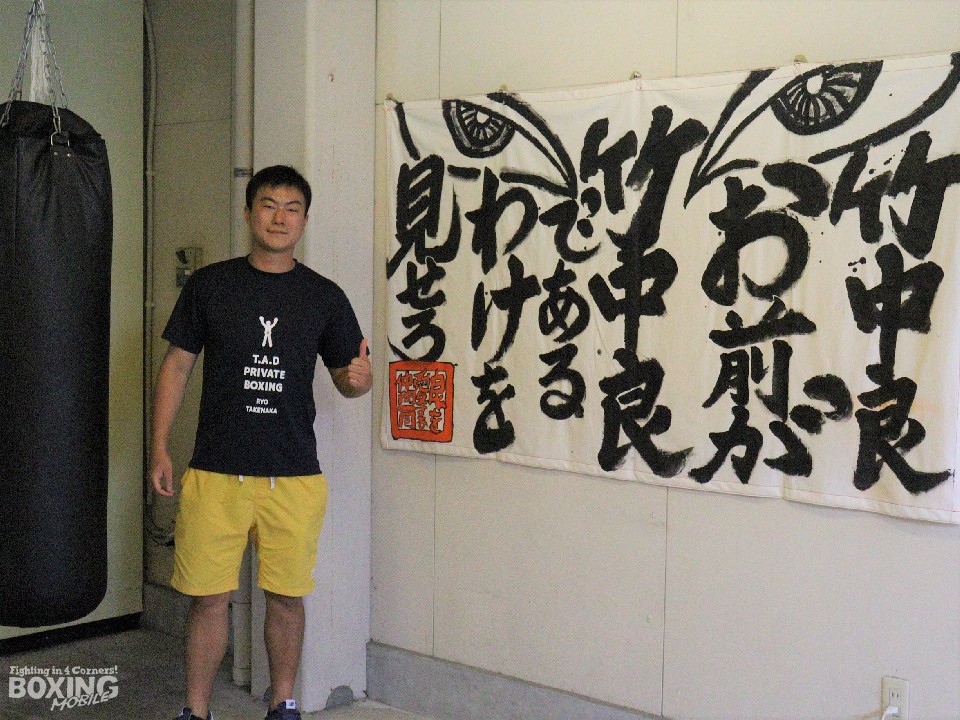 竹中良
お前が
竹中良
である
わけを
見せろ
T.A.D
PRIVATE
BOXING
RYO
TAKENAKA
Fighting in 4 Corners!
BOXING
MOBILE